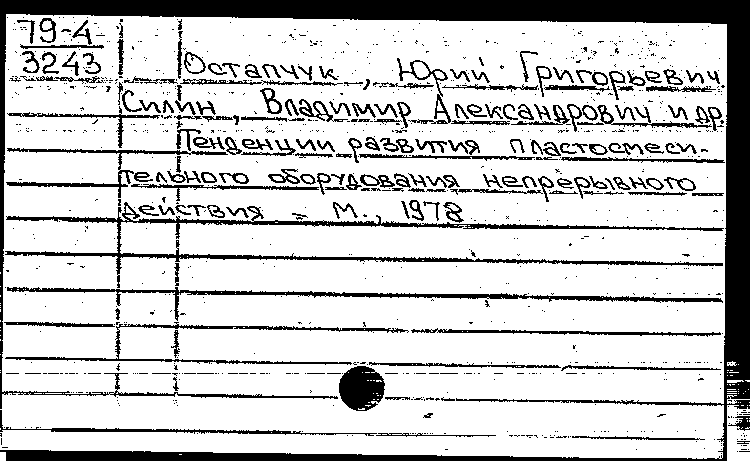 79-4
3243
Остапчук, Юрий Григорьевич
Силин, Владимир Александрович и др
Тенденции развития пластосмеси-
тельного оборудования непрерывного
действия = М., 1978